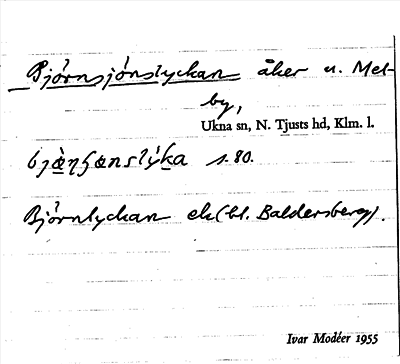 Björnsjönslyckan åker u. Mel-
by,
Ukna sn, N. Tjusts hd, Klm. l.
s. 80.
Björnlyckan ek (bl. Baldersberg).
Ivar Modéer 1955